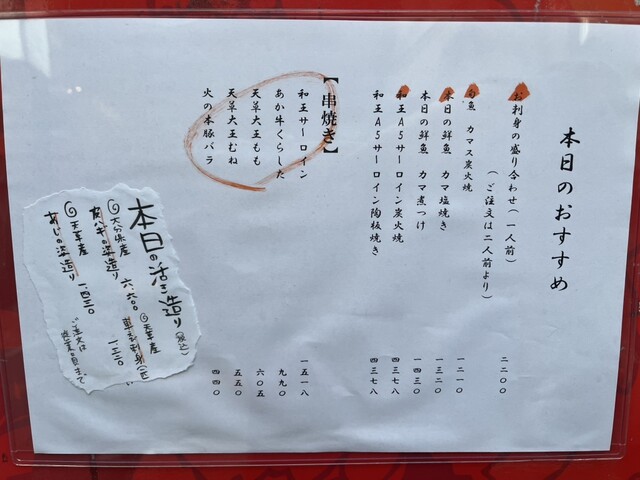 本日のおすすめ
お刺身の盛り合わせ(一人前) 二二〇〇
(ご注文は二人前より)
旬魚 カマス炭火焼 一二一〇
本日の鮮魚 カマ塩焼き 一三二〇
本日の鮮魚 カマ煮つけ 一四三〇
和王A5サーロイン炭火焼 四三七八
和王A5サーロイン陶板焼き 四三七八
【串焼き】
和王サーロイン 一五一八
あか牛くらした 九九〇
天草大王もも 六〇五
天草大王むね 五五〇
火の本豚バラ 四四〇
本日の活き造り(税込)
大分県産
皮ハギの姿造り 六、六〇〇
天草産
あじの姿造り 一、四三〇
天草産
車えび刺身
ご注文は
従業員まで